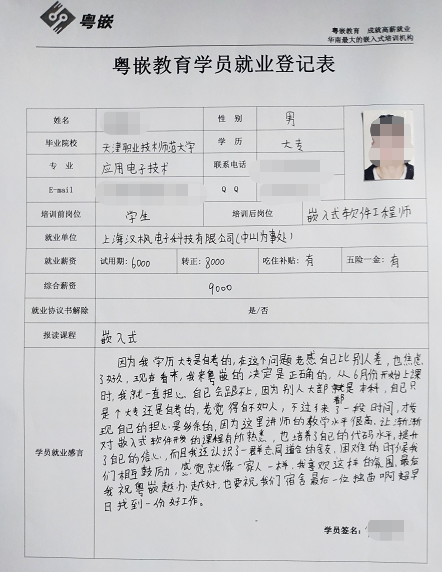 粤嵌
粤嵌教育 成就高薪就业
华南最大的嵌入式培训机构
粤嵌教育学员就业登记表
姓名 性别 男
毕业院校 天津职业技术师范大学 学历 大专
专业 应用电子技术 联系电话
E-mail QQ
培训前岗位 学生 培训后岗位 嵌入式软件工程师
就业单位 上海汉枫电子科技有限公司(中山办事处)
就业薪资 试用期:6000 转正:8000 吃住补贴:有 五险一金:有
综合薪资 9000
就业协议书解除 是/否
报读课程 嵌入式
学员就业感言
因为我学历大专是自考的,在这个问题老感自己比别人差,也焦虑
了好久,现在看来,我来粤嵌的决定是正确的,从6月份开始上课
时,我就一直担心自己会跟不上,因为别人大部都是本科,自己只
是个大专还是自考的,老觉得自不如人,不过来了一段时间,才发
现自己的担心是多余的,因为这里讲师的教学水平很高,让渐渐
对嵌入式软件开发的课程有所熟悉,也培养了自己的代码水平,提升
了自己的信心,而且我还认识了一群志同道合的舍友,困难的时候我
们相互鼓励,感觉就像一家人一样,我喜欢这样的氛围,最后
我祝粤嵌越办越好,也要祝我们宿舍最后一位独苗啊超早
日找到一份好工作。
学员签名: